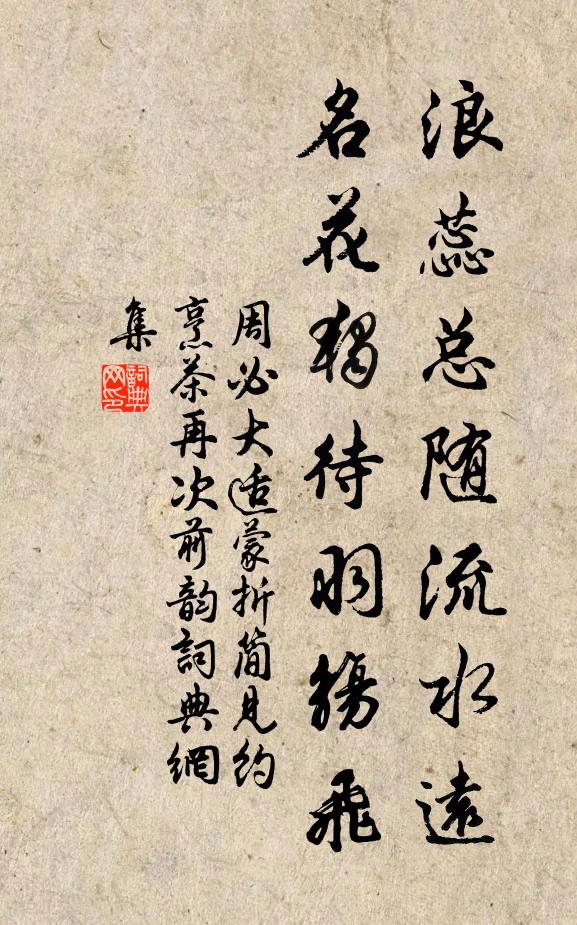 浪蕊总随流水远
名花独待羽觞飞
周必大适蒙折简见约
烹茶再次前韵词典網
集
詞典网印